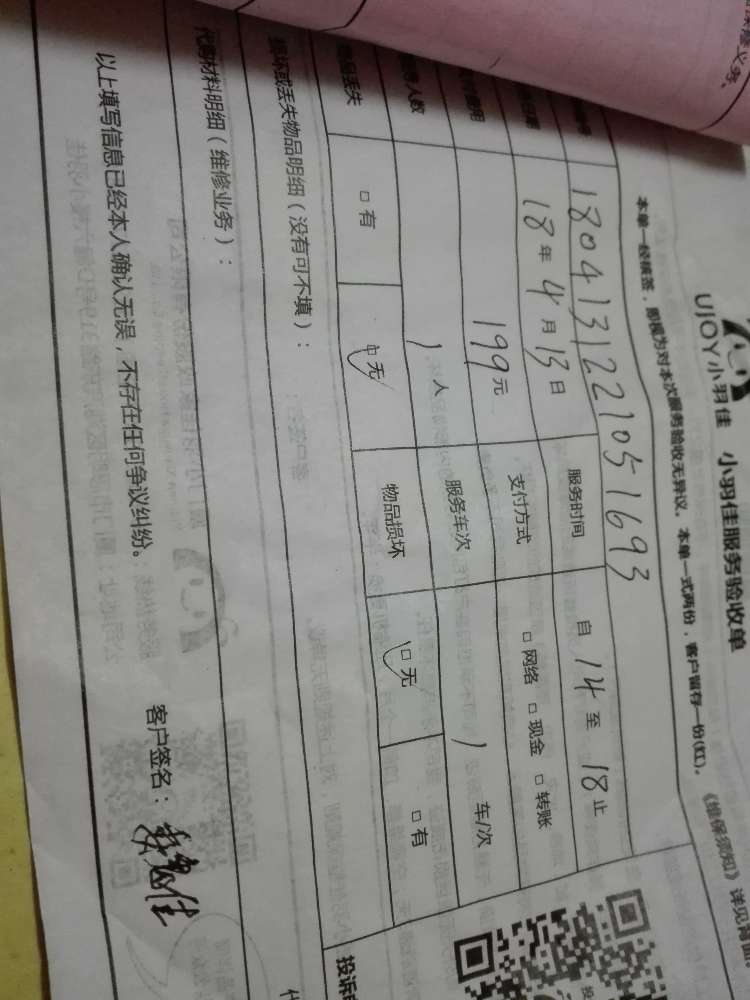 UJOY小羽佳 小羽佳服务验收单
本单一经核签，即视为对本次服务验收无异议。本单一式两份，客户留存一份(红)。《维保须知》详见背面
180413122105 1693
18年4月13日 服务时间 自14至18止
199元 支付方式 □网络 □现金 □转账
人数 1人 服务车次 1车/次
物品丢失 □有 □无 物品损坏 □无 □有
损坏或丢失物品明细（没有可不填）：
代购材料明细（维修业务）：
以上填写信息已经本人确认无误，不存在任何争议纠纷。 客户签名：
投诉